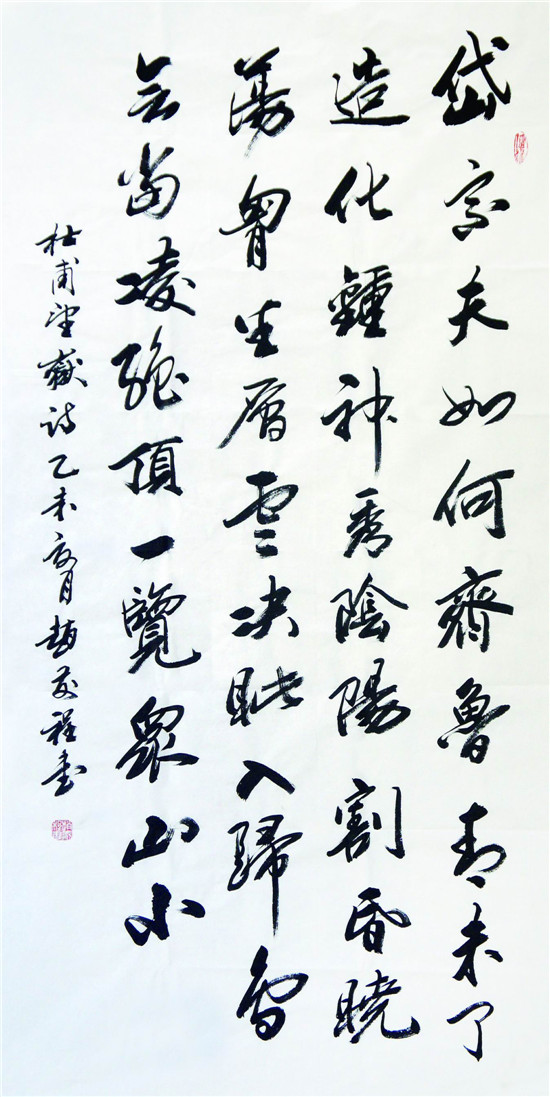 岱宗夫如何齊魯青未了
造化鍾神秀陰陽割昏曉
蕩胷生層雲决眦入歸鳥
会當凌絕頂一覽衆山小
杜甫望嶽詩乙未夏月趙程書